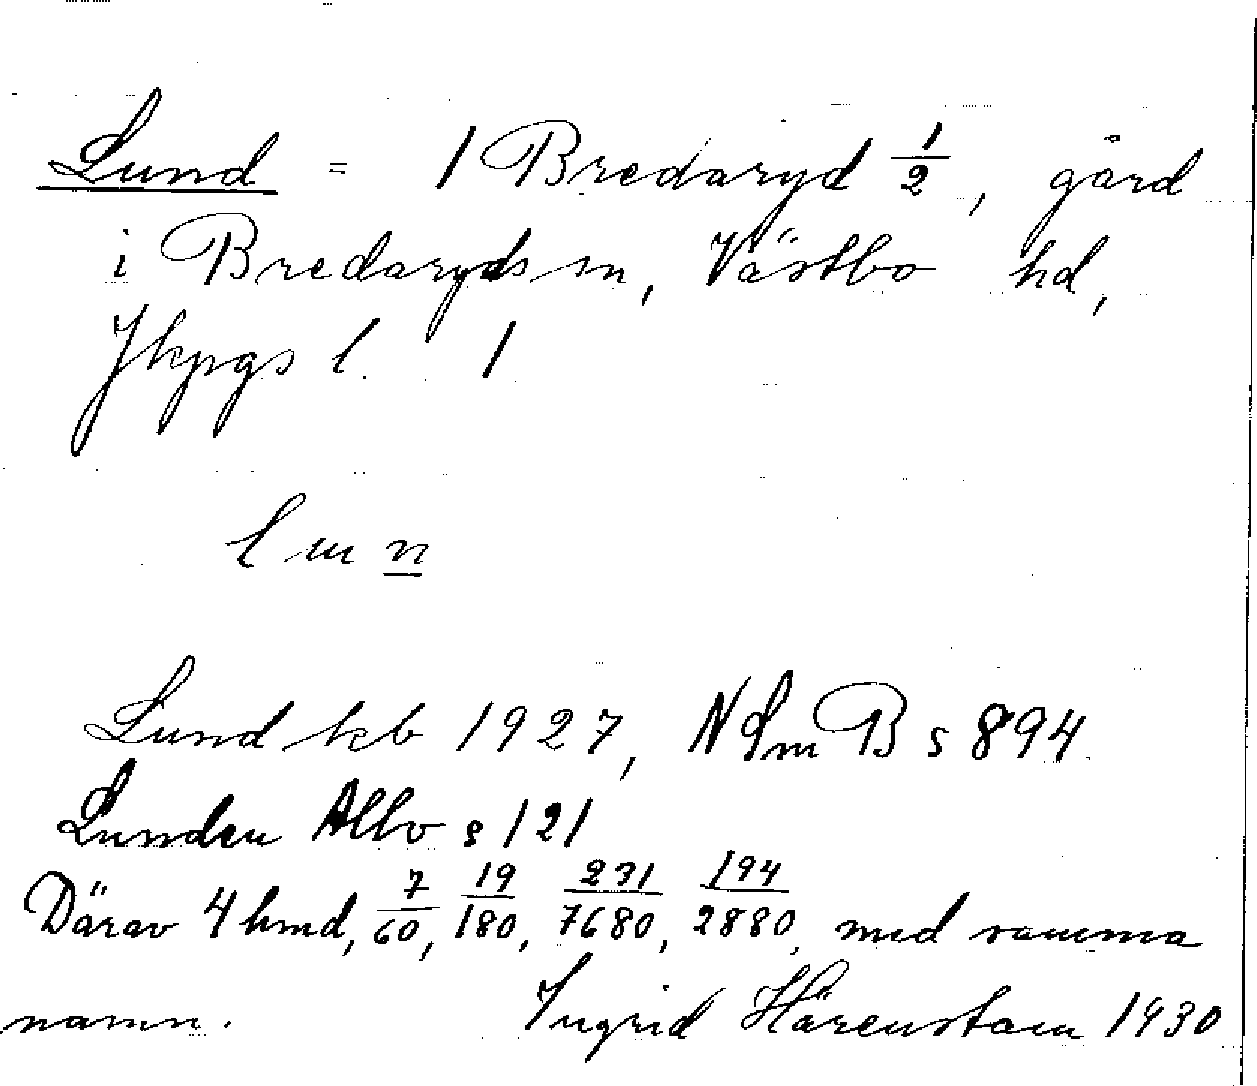 Lund = 1 Bredaryd 1/2, gård
i Bredaryds sn, Västbo hd,
Jkpgs l. 1
l m n
Lund kb 1927, NSmB s 894.
Lunden Allbo s 121
Därav 4 hmd, 7/60, 19/180, 231/7680, 194/2880, med samma
namn. Ingrid Härenstam 1930